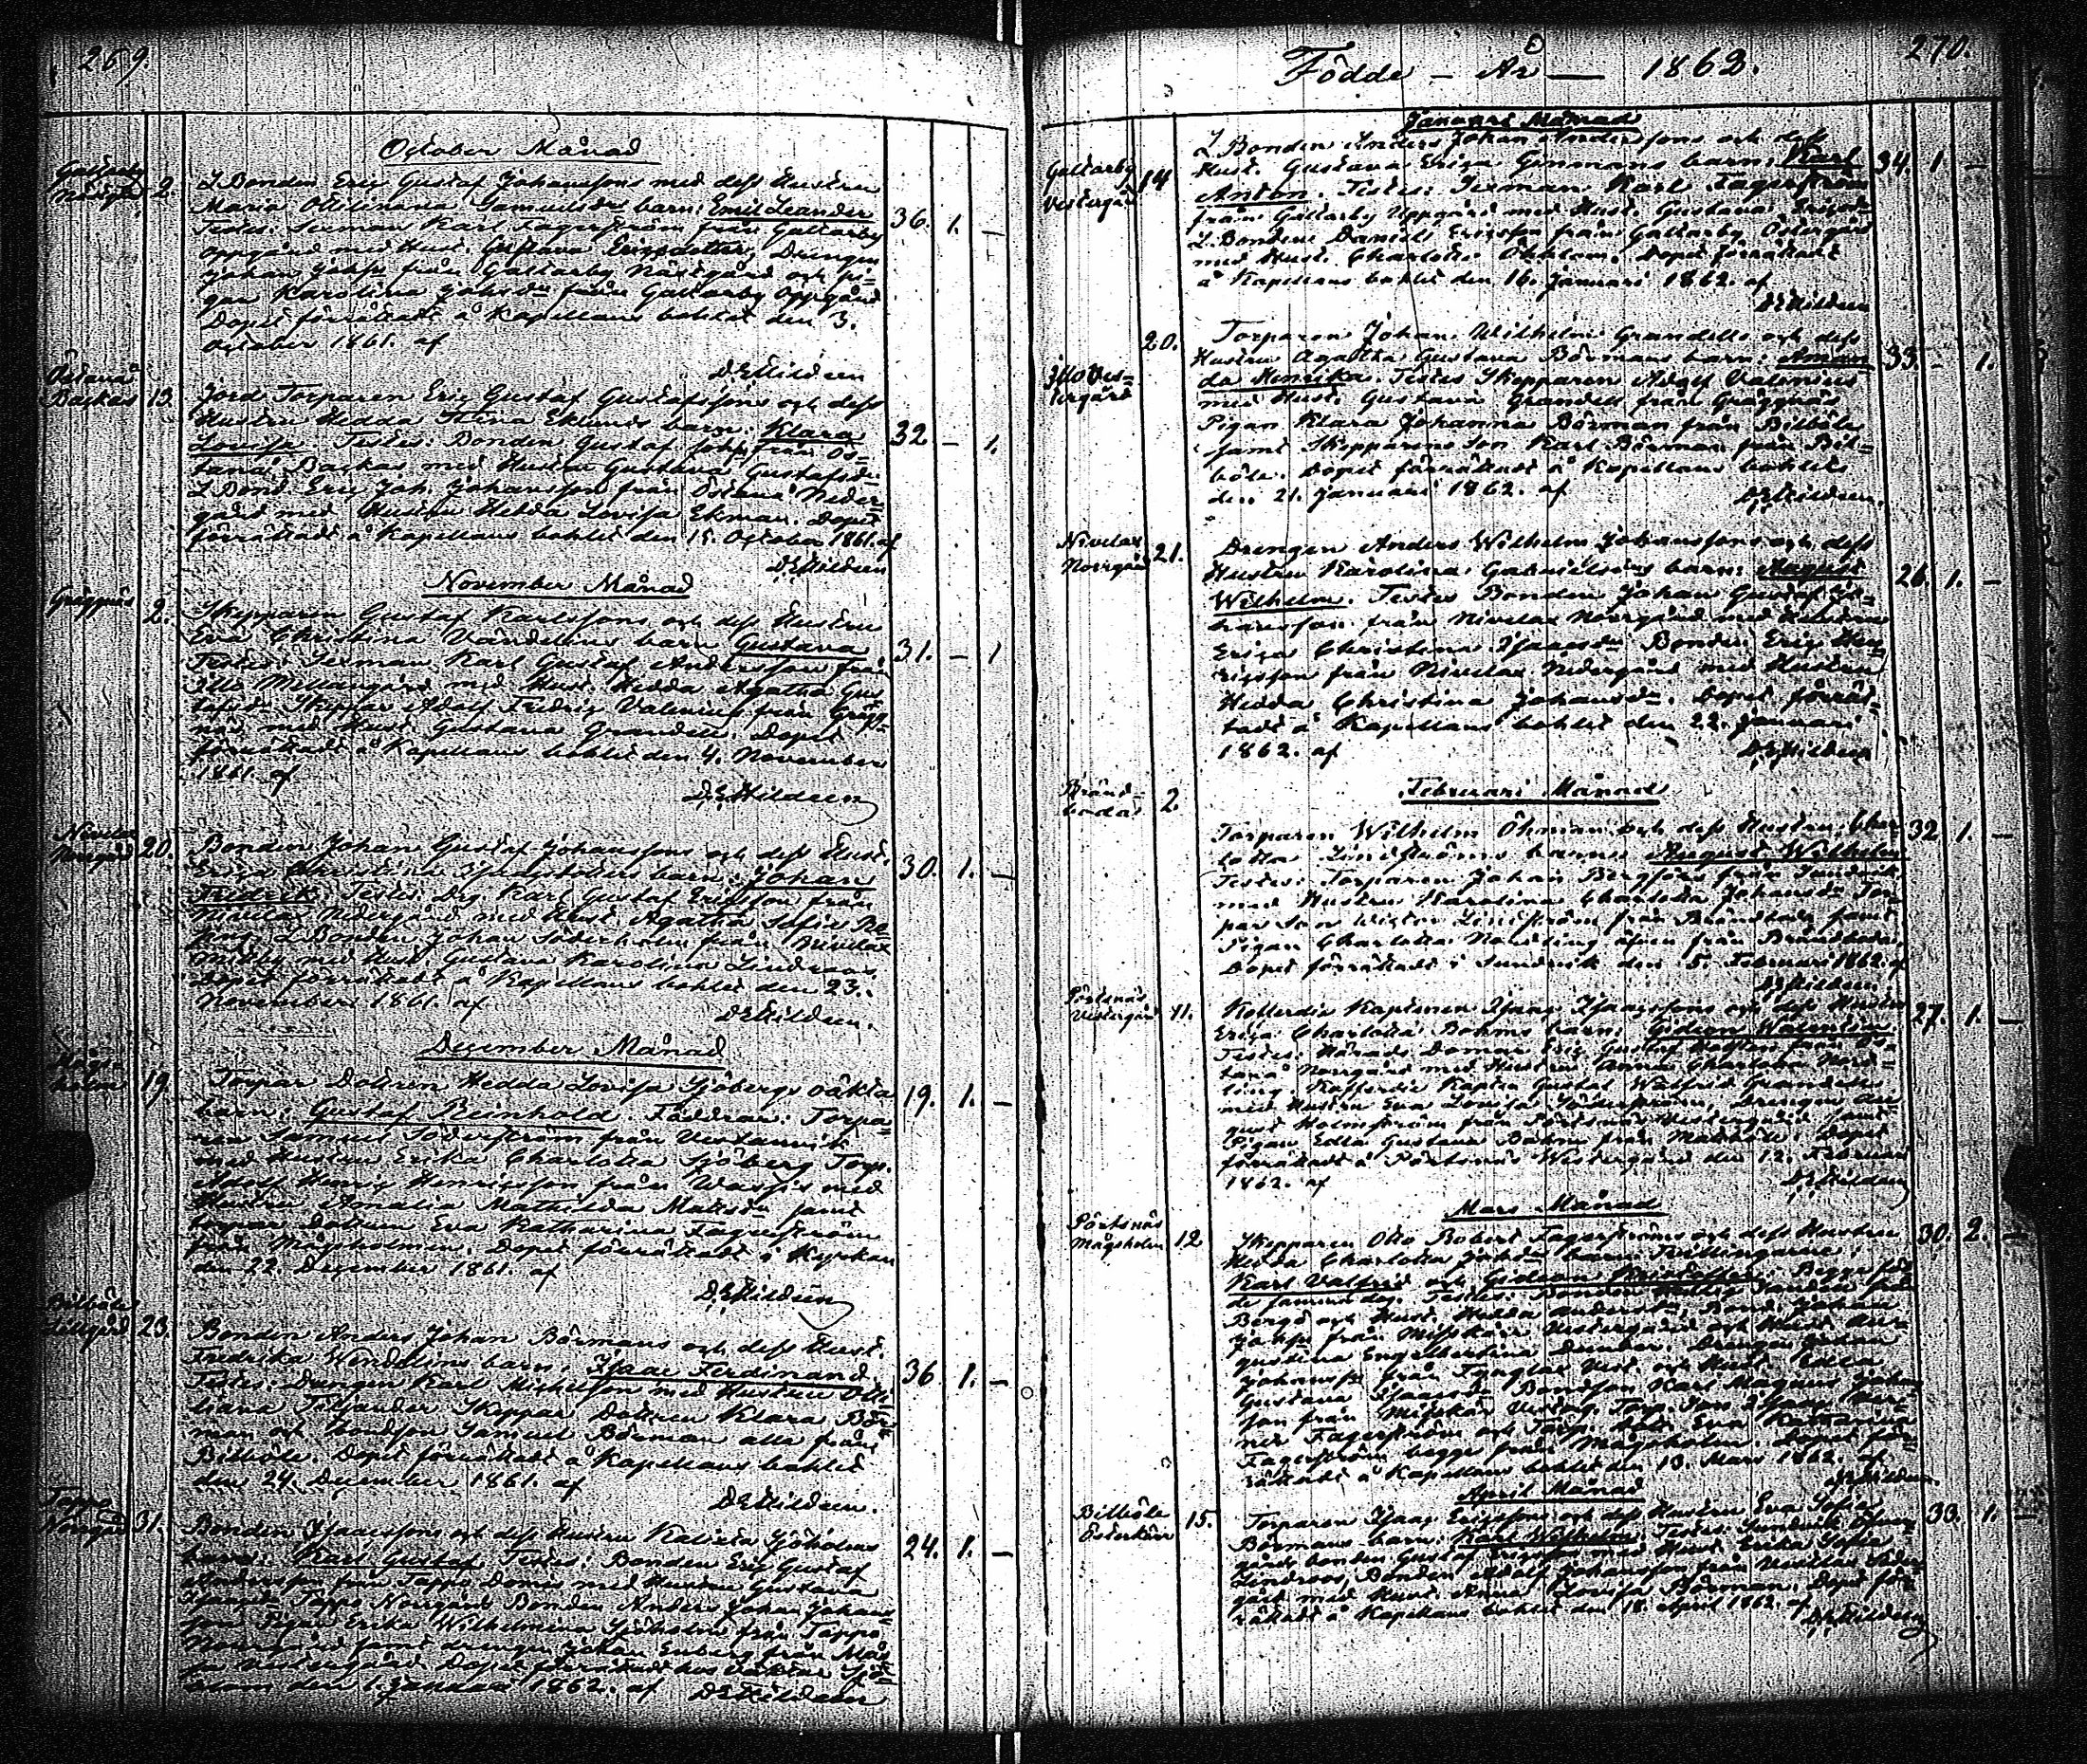 269.
October Månad
Galtarby Näsegård 2. L Bonden Eric Gustaf Johanssons med dess Hustru
Maria Otteliana Samuelsdr barn: Emil Leander 36. 1. –
Testes: Sexman Karl Fagerström från Galtarby
oppgård med Hust. Gustava Ericsdotter, Drengen
Johan Johss från Galtarby och pi-
gan Karolina Johsdr från Galtarby Oppgård
Dopet förrättadt å Kapellans bohlet den 3.
October 1861. af
D E Hildeen
Östanå Backas 13. Jords Torparen Eric Gustaf Gustafssons och dess
Hustru Hedda Stina Eklunds barn: Klara 32 – 1.
Lovisa Testes: Bonden Gustaf från Ös-
tanå Backas med Hustru Gustava Gustafsdr
L Bond Eric Joh. Johansson från Östanå Neder-
gård med Hustru Hedda Lovisa Ekman. Dopet
förrättadt å Kapellans bohlet den 15. October 1861. af
D E Hildeen
November Månad
Gräggnäs 2. Skepparen Gustaf Karlssons och dess Hustru
Eva Christina Vändelins barn Gustava 31. – 1
Testes: Sexman Karl Gustaf Andersson från
Illo Mellangård med Hust. Hedda Agatha Gus
tafsdr Skeppar Adolf Fredric Valenius från Gräg-
näs med Hust Gustava Grandell. Dopet
förrättadt å Kapellans bohlet den 4. November
1861. af
D E Hildeen
Nivelax Norrgård 20. Bonden Johan Gustaf Johanssons och dess Hust.
Erica Christina Isaacsdotters barn: Johan 30. 1. –
Fredrik Testes: Drg Karl Gustaf Ericsson från
Nivelax Nedergård med Hust. Agatha Sofia
L Bonden Johan Söderholm från Nivelax
med Hust Gustava Karolina Lindroos
Dopet förrättadt å Kapellans bohlet den 23.
November 1861. af
D E Hildeen.
December Månad
Mågsholm 19. Torpar Dottren Hedda Lovisa Sjöbergs oäkta 19. 1. –
barn: Gustaf Reinhold. Faddrar: Torpa-
ren Samuel Söderström från Vestanvik
med Hustru Erika Charlotta Sjöberg Torp.
Adolf Henric Henricsson från med
Hustru Amalia Mathilda Matsdr samt
torpar dottren Eva Katharina Fagerström
från Mågsholmen. Dopet förrättadt i Kyrkan
den 22 December 1861. af
D E Hildeen
Bilböle 23. Bonden Anders Johan Börmans och dess Hust.
Fredrika Wendelins barn: Isaac Ferdinand 36. 1. –
Testes: Drengen Karl Michelsson med Hustru Otte-
liana Skeppar Dottren Klara Bör-
man och bondson Samuel Börman alla från
Bilböle. Dopet förrättadt å Kapellans bohlet
den 24. December 1861. af
D E Hildeen.
Tappo Norrgård 31. Bonden Isaacssons och dess Hustru Sjöholms 24. 1. –
barn: Karl Gustaf Testes: Bonden Eric Gustaf
Andersson från Tappo med Hustru Gustava
Isaacsdr Tappo Norrgård Bonden Anders Johan Johans
son Pigan Erika Wilhelmina Sjöholm från Tappo
Norrgård samt drengen Johan Enberg från
Dopet förrättadt hos
den 1. Januari 1862. af D E Hildeen
270.
Födde – År — 1862.
Januari Månad
Galtarby Vestergård 14 L Bonden Anders Johan Anderssons och dess
Hust. Gustava Erica Genmans barn: Karl 34. 1. –
Anton. Testes: Sexman Karl Fagerström
från Galtarby Uppgård med Hust. Gustava Ericsdr
L. Bonden Daniel Ericsson från Galtarby Östergård
med Hust. Charlotta Öhblom. Dopet förrättadt
å Kapellans bohlet den 16. Januari 1862. af
D E Hildeen
Illo Vestergård 20. Torparen Johan Wilhelm Grandells och dess
Hustru Agatha Gustava Börmans barn: Aman- 33. – 1.
da Henrika. Testes Skepparen Adolf Valenius
med Hust. Gustava Grandell från Gräggnäs
Pigan Klara Johanna Börman från Bilböle
samt Skepparens Son Karl Börman från Bil-
böle. Dopet förrättadt å Kapellans bohlet
den 21. Januari 1862. af D E Hildeen.
Nivelax Norrgård 21. Drengen Anders Wilhelm Johanssons och dess
Hustru Karolina Gabrielsdrs barn: August 26. 1. –
Wilhelm. Testes Bonden Johan Gustaf Jo-
hansson från Nivelax Norrgård med Hustru
Erica Christina Isaacsdr Bonden Eric Hen-
ricsson från Nivelax Nedergård med Hustru
Hedda Christina Johansdr. Dopet förrät-
tadt å Kapellans bohlet den 22. Januari
1862. af D E Hildeen
Februari Månad
Brändboda 2. Torparen Wilhelm Öhman och dess Hustru Char- 32 1. –
lotta Lindströms barn: August Wilhelm
Testes: Torparen Johan Bergfors från Sundvik
med Hustru Karolina Charlotta Johansdr Tor-
par Son Victor Lindström från Brändboda samt
Pigan Charlotta Nordling äfven från Brändboda.
Dopet förrättadt i Sundvik den 5. Februari 1862. af
D E Hildeen
Pörtsnäs Vestergård 11. Kofferdie Kaptenen Isaac Isaacssons och dess Hustru 27. 1. –
Erica Charlotta Böhms barn: Gideon Walentin.
Testes: Härads Domare Eric Gustaf från Ös-
tanå Norrgård med Hustru Anna Charlotta Nord-
ling Kofferdie Kapten Gustaf Walfrid Grandell
med Hustru Eva Lovisa Söderström, drengen Au-
gust Holmström från Pörtsnäs Vestergård samt
Pigan Edla Gustava Böhm från Dopet
förrättadt å Pörtsnäs Westergård den 12. Februari
1862. af D E Hildeen
Mars Månad
Pörtsnäs Mågsholm 12 Skepparen Otto Robert Fagerströms och dess Hustru 30. 2. –
Hedda Charlotta Johsdr barn Tvillingarne:
Karl Valfrid och Gideon Bägge föd
de samma dag. Testes: Bonden
Bergö och Hust. Hedda Andersdr, Bond. Johan
Johss från Misskärr Vestergård och Hust Au-
gustina Engelbertina Dunder. Drengen Johan
Johanss från Vest. och Hust. Edla
Gustava Isaacsdr Bondson Karl Magnus Johans
son från Misskär Vesterg. Torp. Son Isaac
Fagerström och Torp. dotr Eva Katharina
Fagerström begge från Mågsholm. Dopet för-
rättadt å Kapellans bohlet den 13. Mars 1862. af
D E Hildeen
April Månad
Bilböle Österskär 15. Torparen Isaac Ericssons och dess Hustru Eva Sofia 33. 1. –
Börmans barn: Karl Wilhelm. Testes: Sundvik
gårds bonden Gustaf med Hust. Erika Sofia
Lindroos, Bonden Adolf Johansson från Nivelax Neder
gård med Hust. Anna Lovisa Börman. Dopet för-
rättadt å Kapellans bohlet den 18. April 1862. af
D E Hildeen